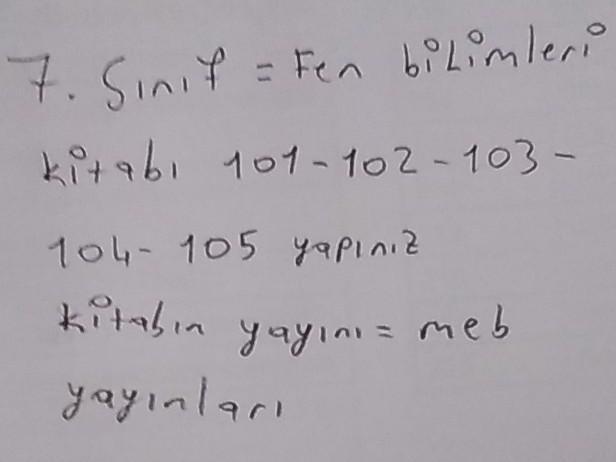 7. Sınıf = Fen bilimleri
kitabı 101-102-103-
104-105 yapınız
kitabın yayını = meb
yayınları